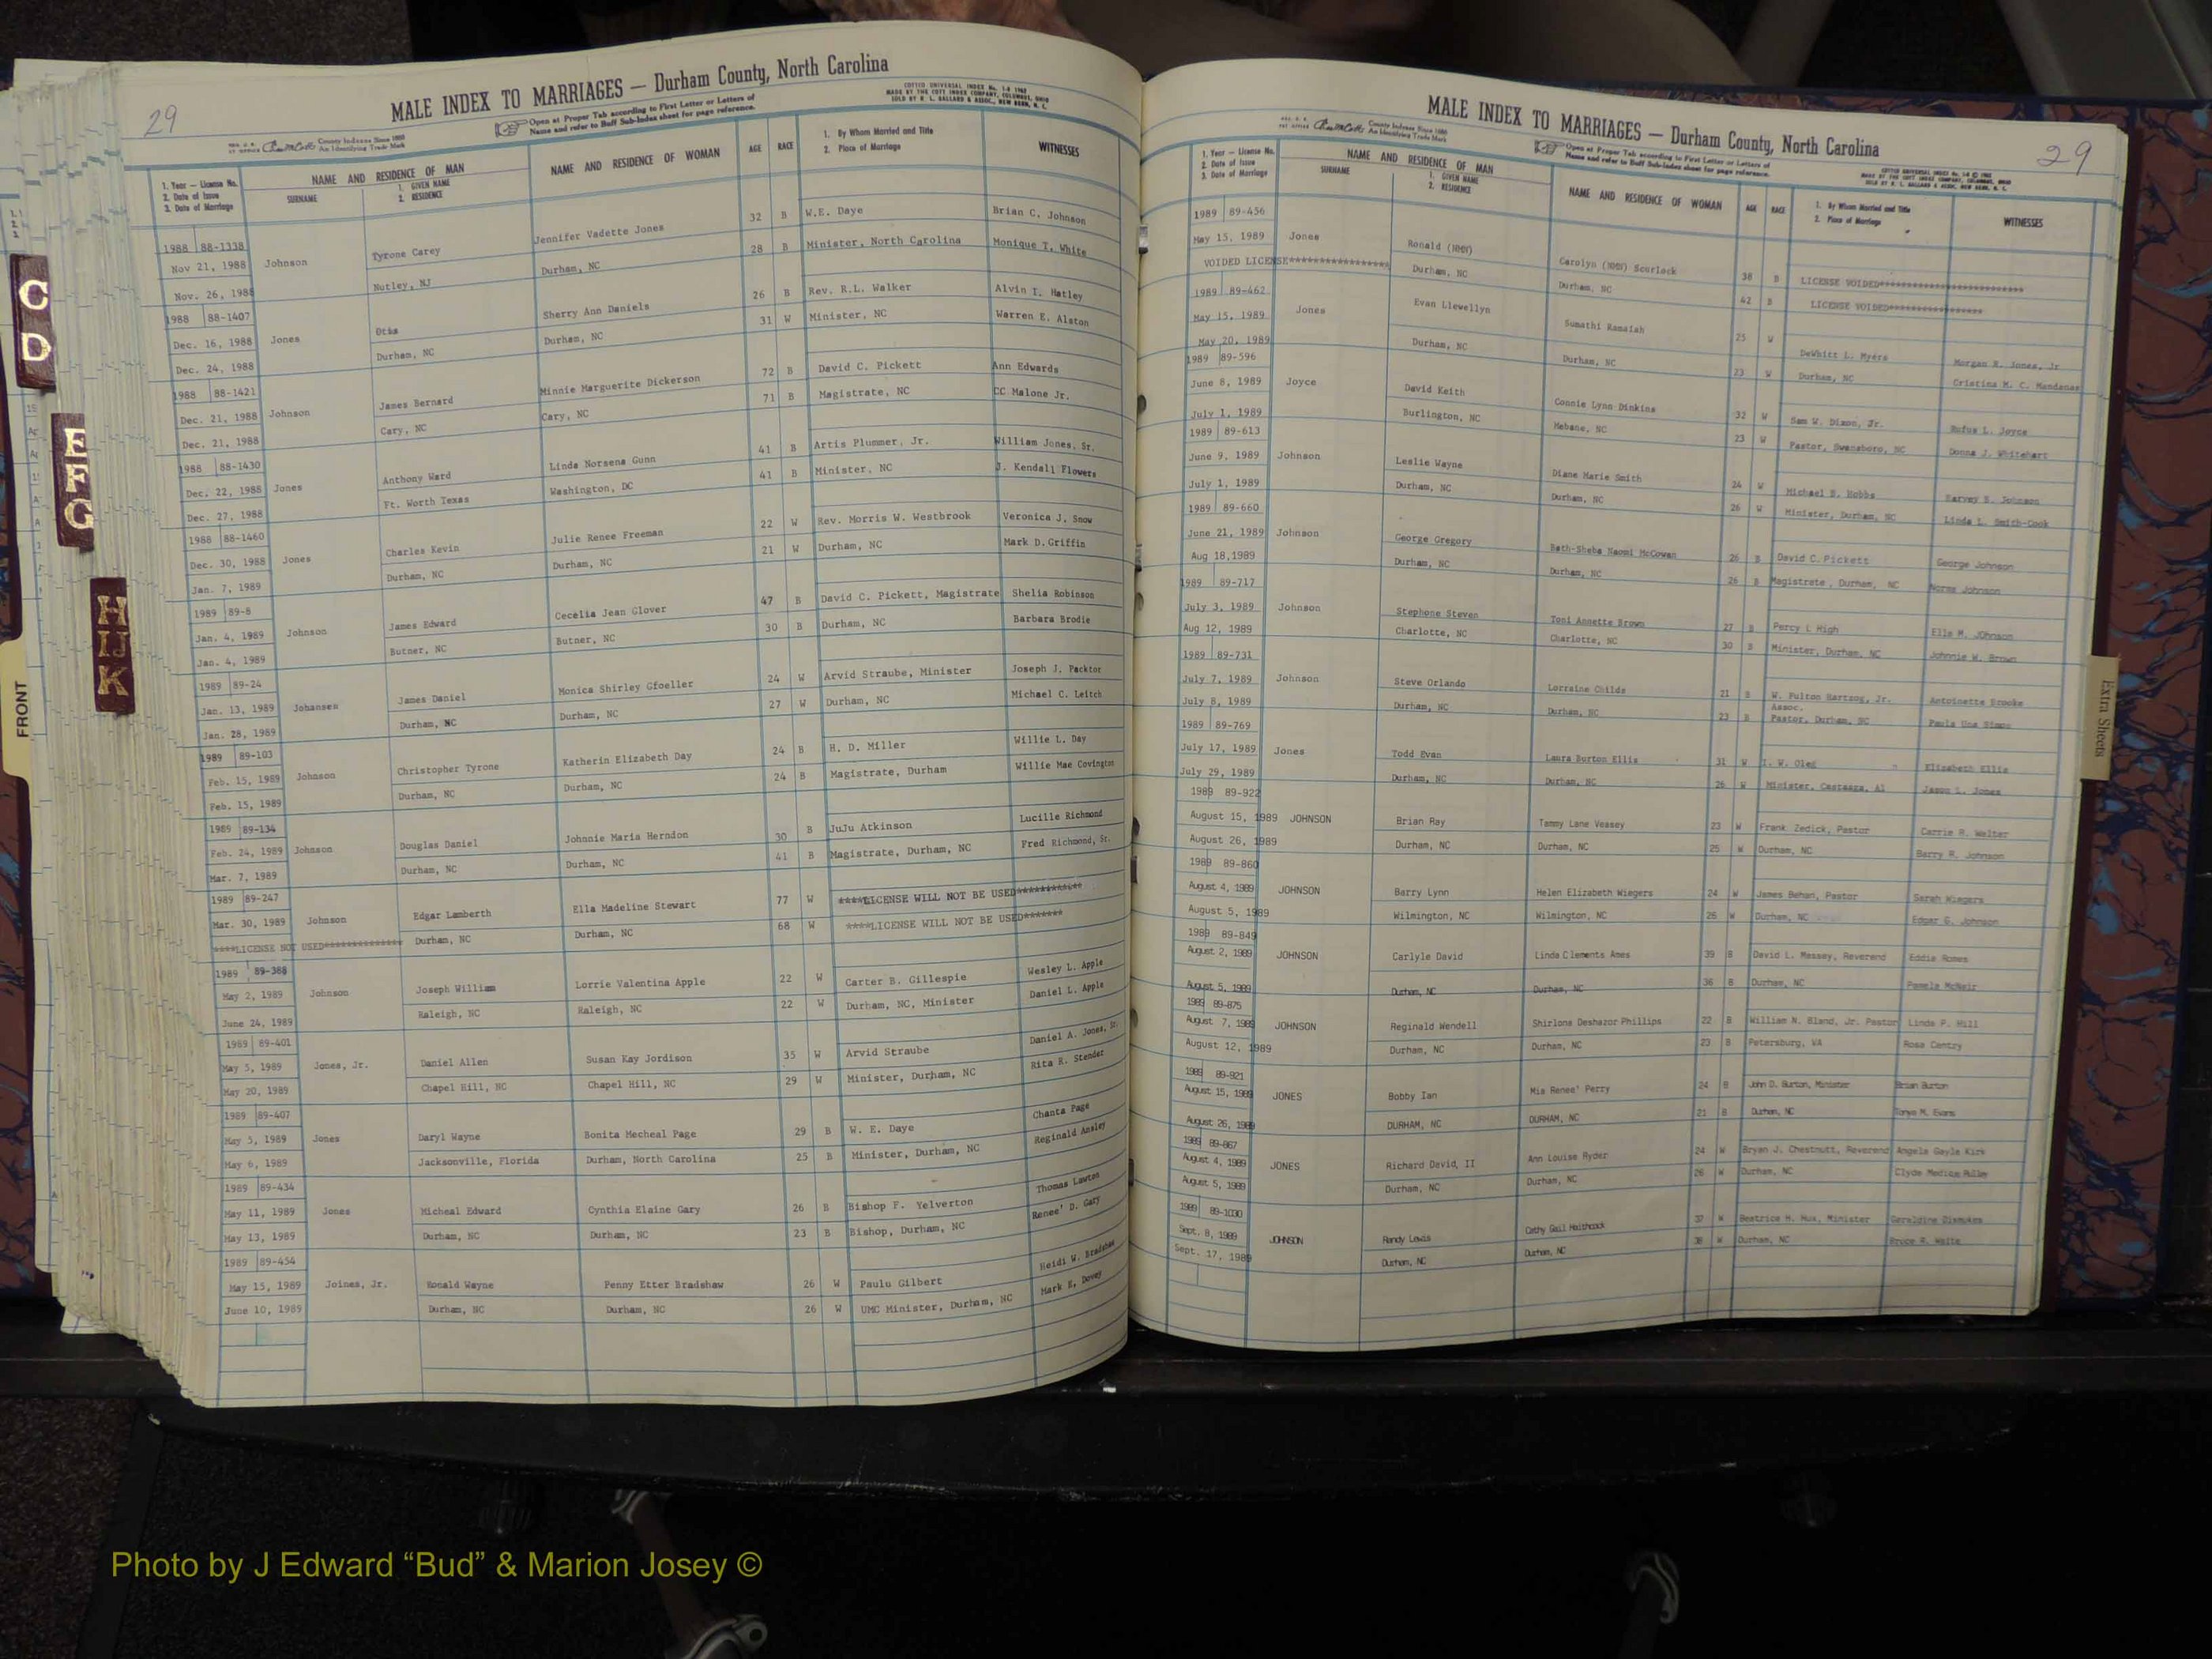 29
MALE INDEX TO MARRIAGES — Durham County, North Carolina
Open at Proper Tab according to First Letter or Letters of
Name and refer to Buff Sub-Index sheet for page reference.
COTTCO UNIVERSAL INDEX
MADE BY THE COTT INDEX COMPANY, COLUMBUS, OHIO
SOLD BY R. L. BALLARD & ASSOC., NEW BERN, N. C.
County Indexes Since 1888
An Identifying Trade Mark
1. Year — License No.
2. Date of Issue
3. Date of Marriage
NAME AND RESIDENCE OF MAN
SURNAME
1. GIVEN NAME
2. RESIDENCE
NAME AND RESIDENCE OF WOMAN
AGE RACE
1. By Whom Married and Title
2. Place of Marriage
WITNESSES
1988 88-1338
Nov 21, 1988 Johnson Tyrone Carey Jennifer Vadette Jones 32 B W.E. Daye Brian C. Johnson
Nov. 26, 1988 Nutley, NJ Durham, NC 28 B Minister, North Carolina Monique T. White
1988 88-1407
Dec. 16, 1988 Jones Otis Sherry Ann Daniels 26 B Rev. R.L. Walker Alvin I. Hatley
Dec. 24, 1988 Durham, NC Durham, NC 31 W Minister, NC Warren E. Alston
1988 88-1421
Dec. 21, 1988 Johnson James Bernard Minnie Marguerite Dickerson 72 B David C. Pickett Ann Edwards
Dec. 21, 1988 Cary, NC Cary, NC 71 B Magistrate, NC CC Malone Jr.
1988 88-1430
Dec. 22, 1988 Jones Anthony Ward Linda Norsena Gunn 41 B Artis Plummer, Jr. William Jones, Sr.
Dec. 27, 1988 Ft. Worth Texas Washington, DC 41 B Minister, NC J. Kendall Flowers
1988 88-1460
Dec. 30, 1988 Jones Charles Kevin Julie Renee Freeman 22 W Rev. Morris W. Westbrook Veronica J. Snow
Jan. 7, 1989 Durham, NC Durham, NC 21 W Durham, NC Mark D. Griffin
1989 89-8
Jan. 4, 1989 Johnson James Edward Cecelia Jean Glover 47 B David C. Pickett, Magistrate Shelia Robinson
Jan. 4, 1989 Butner, NC Butner, NC 30 B Durham, NC Barbara Brodie
1989 89-24
Jan. 13, 1989 Johansen James Daniel Monica Shirley Gfoeller 24 W Arvid Straube, Minister Joseph J. Packtor
Jan. 28, 1989 Durham, NC Durham, NC 27 W Durham, NC Michael C. Leitch
1989 89-103
Feb. 15, 1989 Johnson Christopher Tyrone Katherin Elizabeth Day 24 B H. D. Miller Willie L. Day
Feb. 15, 1989 Durham, NC Durham, NC 24 B Magistrate, Durham Willie Mae Covington
1989 89-134
Feb. 24, 1989 Johnson Douglas Daniel Johnnie Maria Herndon 30 B JuJu Atkinson Lucille Richmond
Mar. 7, 1989 Durham, NC Durham, NC 41 B Magistrate, Durham, NC Fred Richmond, Sr.
1989 89-247
Mar. 30, 1989 Johnson Edgar Lamberth Ella Madeline Stewart 77 W ****LICENSE WILL NOT BE USED************
****LICENSE NOT USED************** Durham, NC Durham, NC 68 W ****LICENSE WILL NOT BE USED*******
1989 89-388
May 2, 1989 Johnson Joseph William Lorrie Valentina Apple 22 W Carter B. Gillespie Wesley L. Apple
June 24, 1989 Raleigh, NC Raleigh, NC 22 W Durham, NC, Minister Daniel L. Apple
1989 89-401
May 5, 1989 Jones, Jr. Daniel Allen Susan Kay Jordison 35 W Arvid Straube Daniel A. Jones, Sr.
May 20, 1989 Chapel Hill, NC Chapel Hill, NC 29 W Minister, Durham, NC Rita R. Stender
1989 89-407
May 5, 1989 Jones Daryl Wayne Bonita Mecheal Page 29 B W. E. Daye Chanta Page
May 6, 1989 Jacksonville, Florida Durham, North Carolina 25 B Minister, Durham, NC Reginald Ansley
1989 89-434
May 11, 1989 Jones Micheal Edward Cynthia Elaine Gary 26 B Bishop F. Yelverton Thomas Lawton
May 13, 1989 Durham, NC Durham, NC 23 B Bishop, Durham, NC Renee' D. Gary
1989 89-454
May 15, 1989 Joines, Jr. Ronald Wayne Penny Etter Bradshaw 26 W Paulu Gilbert Heidi W. Bradshaw
June 10, 1989 Durham, NC Durham, NC 26 W UMC Minister, Durham, NC Mark E. Dovey
MALE INDEX TO MARRIAGES — Durham County, North Carolina
29
County Indexes Since 1888
An Identifying Trade Mark
Open at Proper Tab according to First Letter or Letters of
Name and refer to Buff Sub-Index sheet for page reference.
1. Year — License No.
2. Date of Issue
3. Date of Marriage
NAME AND RESIDENCE OF MAN
SURNAME
1. GIVEN NAME
2. RESIDENCE
NAME AND RESIDENCE OF WOMAN
AGE RACE
1. By Whom Married and Title
2. Place of Marriage
WITNESSES
1989 89-456
May 15, 1989 Jones Ronald (NMN) Carolyn (NMN) Scurlock 38 B LICENSE VOIDED**************************
VOIDED LICENSE****************** Durham, NC Durham, NC 42 B LICENSE VOIDED*****************
1989 89-462
May 15, 1989 Jones Evan Llewellyn Sumathi Ramaiah 25 W DeWhitt L. Myers Morgan R. Jones, Jr
May 20, 1989 Durham, NC Durham, NC 23 W Durham, NC Cristina M. C. Mandanas
1989 89-596
June 8, 1989 Joyce David Keith Connie Lynn Dinkins 32 W Sam W. Dixon, Jr. Rufus L. Joyce
July 1, 1989 Burlington, NC Mebane, NC 23 W Pastor, Swansboro, NC Donna J. Whitehart
1989 89-613
June 9, 1989 Johnson Leslie Wayne Diane Marie Smith 24 W Michael S. Hobbs Harvey S. Johnson
July 1, 1989 Durham, NC Durham, NC 26 W Minister, Durham, NC Linda L. Smith-Cook
1989 89-660
June 21, 1989 Johnson George Gregory Bath-Sheba Naomi McCowan 26 B David C. Pickett George Johnson
Aug 18,1989 Durham, NC Durham, NC 26 B Magistrate, Durham, NC Norma Johnson
1989 89-717
July 3, 1989 Johnson Stephone Steven Toni Annette Brown 27 B Percy L High Ella M. JOhnson
Aug 12, 1989 Charlotte, NC Charlotte, NC 30 B Minister, Durham, NC Johnnie W. Brown
1989 89-731
July 7, 1989 Johnson Steve Orlando Lorraine Childs 21 B W. Fulton Hartzog, Jr. Antoinette Brooks
Assoc.
July 8, 1989 Durham, NC Durham, NC 23 B Pastor, Durham, NC Paula Una
1989 89-769
July 17, 1989 Jones Todd Evan Laura Burton Ellis 31 W I. W. Oleg Elizabeth Ellis
July 29, 1989 Durham, NC Durham, NC 26 W Minister, Al Jason L. Jones
1989 89-922
August 15, 1989 JOHNSON Brian Ray Tammy Lane Veasey 23 W Frank Zedick, Pastor Carrie R. Walter
August 26, 1989 Durham, NC Durham, NC 25 W Durham, NC Barry R. Johnson
1989 89-860
August 4, 1989 JOHNSON Barry Lynn Helen Elizabeth Wiegers 24 W James Behan, Pastor Sarah Wiegers
August 5, 1989 Wilmington, NC Wilmington, NC 26 W Durham, NC Edgar G. Johnson
1989 89-849
August 2, 1989 JOHNSON Carlyle David Linda Clements Ames 39 B David L. Massey, Reverend Eddie Romes
August 5, 1989 Durham, NC Durham, NC 36 B Durham, NC Pamela McNair
1989 89-875
August 7, 1989 JOHNSON Reginald Wendell Shirlona Deshazor Phillips 22 B William N. Bland, Jr. Pastor Linda P. Hill
August 12, 1989 Durham, NC Durham, NC 23 B Petersburg, VA Rosa Gentry
1989 89-921
August 15, 1989 JONES Bobby Ian Mia Renee' Perry 24 B John D. Burton, Minister Brian Burton
August 26, 1989 DURHAM, NC DURHAM, NC 21 B Durham, NC Tonya M. Evans
1989 89-867
August 4, 1989 JONES Richard David, II Ann Louise Ryder 24 W Bryan J. Chestnutt, Reverend Angela Gayle Kirk
August 5, 1989 Durham, NC Durham, NC 26 W Durham, NC Clyde
1989 89-1030
Sept. 8, 1989 JOHNSON Randy Lewis Cathy Gail Haithcock 37 W Beatrice H. Hus, Minister Geraldine Dismukes
Sept. 17, 1989 Durham, NC Durham, NC 38 W Durham, NC Bruce R. Waite
C
D
E
F
G
H
IJ
K
FRONT
Extra Sheets
Photo by J Edward “Bud” & Marion Josey ©